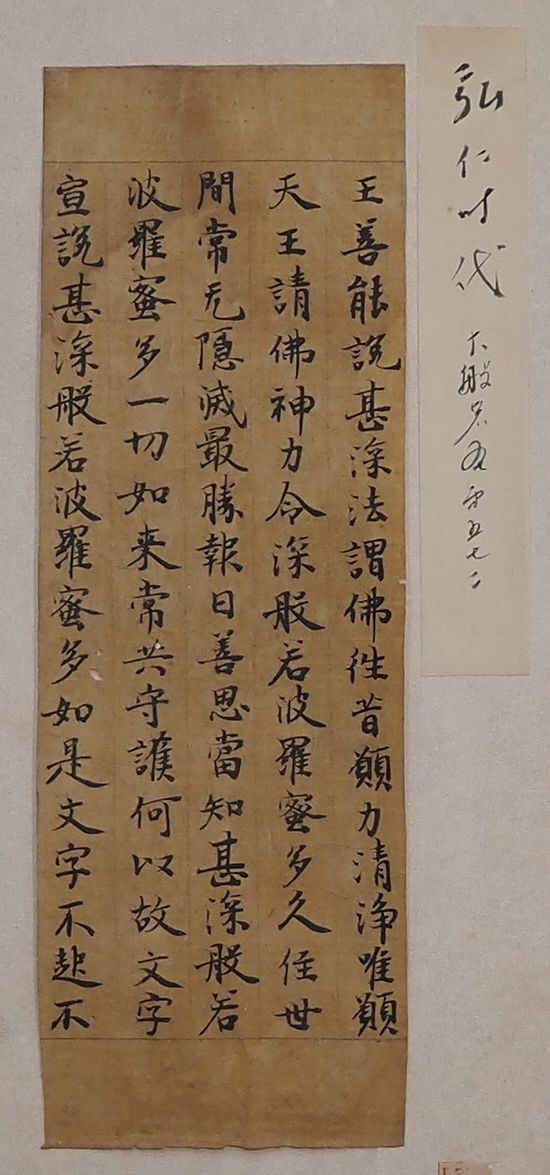 弘仁时代
大般若 第五七二
王善能說甚深法謂佛往昔願力清淨唯願
天王請佛神力令深般若波羅蜜多久住世
間常无隱滅最勝報曰善思當知甚深般若
波羅蜜多一切如来常共守護何以故文字
宣說甚深般若波羅蜜多如是文字不起不